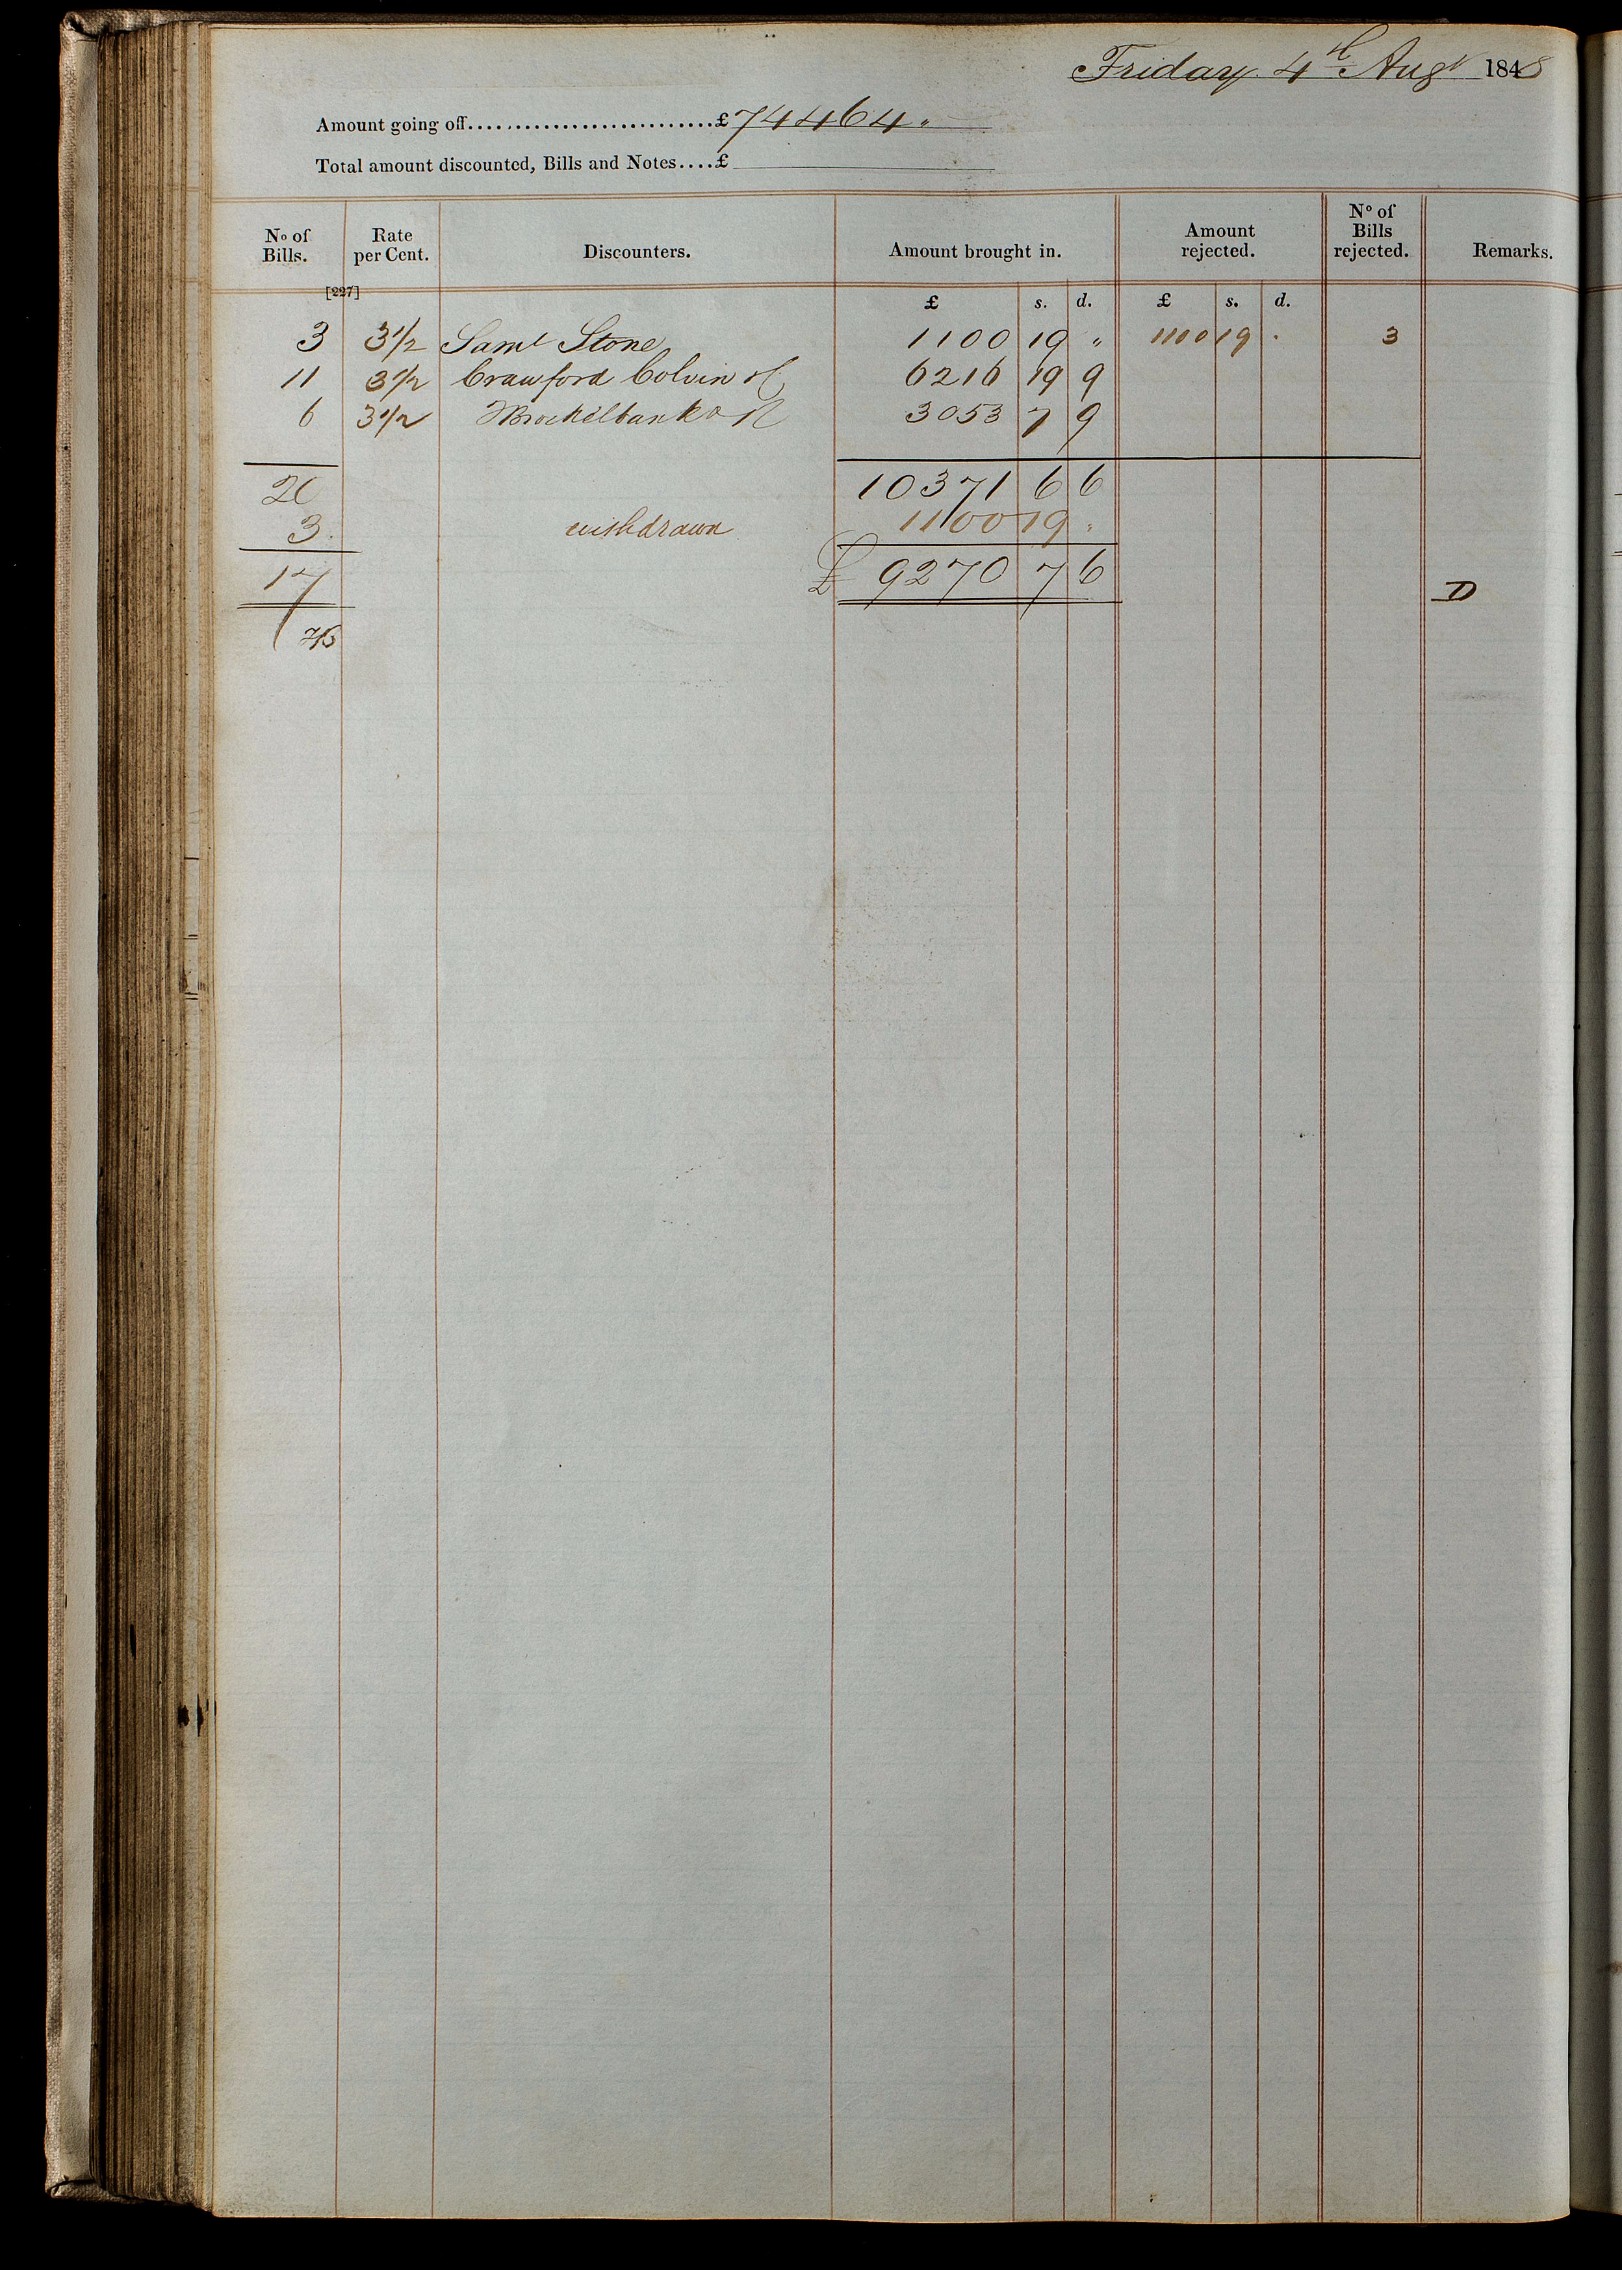 Friday 4th Augt 1848
Amount going off..........................£74464 "
Total amount discounted, Bills and Notes....£
No of Bills. Rate per Cent. Discounters. Amount brought in. Amount rejected. No of Bills rejected. Remarks.
[227]
£ s. d. £ s. d.
3 3 1/2 Saml Stone 1100 19 " 1100 19 . 3
11 3 1/2 Crawford Colvin & C 6216 19 9
6 3 1/2 Brockelbank & R 3053 7 9
20 10371 6 6
3. withdrawn 1100 19 "
17 £ 9270 7 6
D